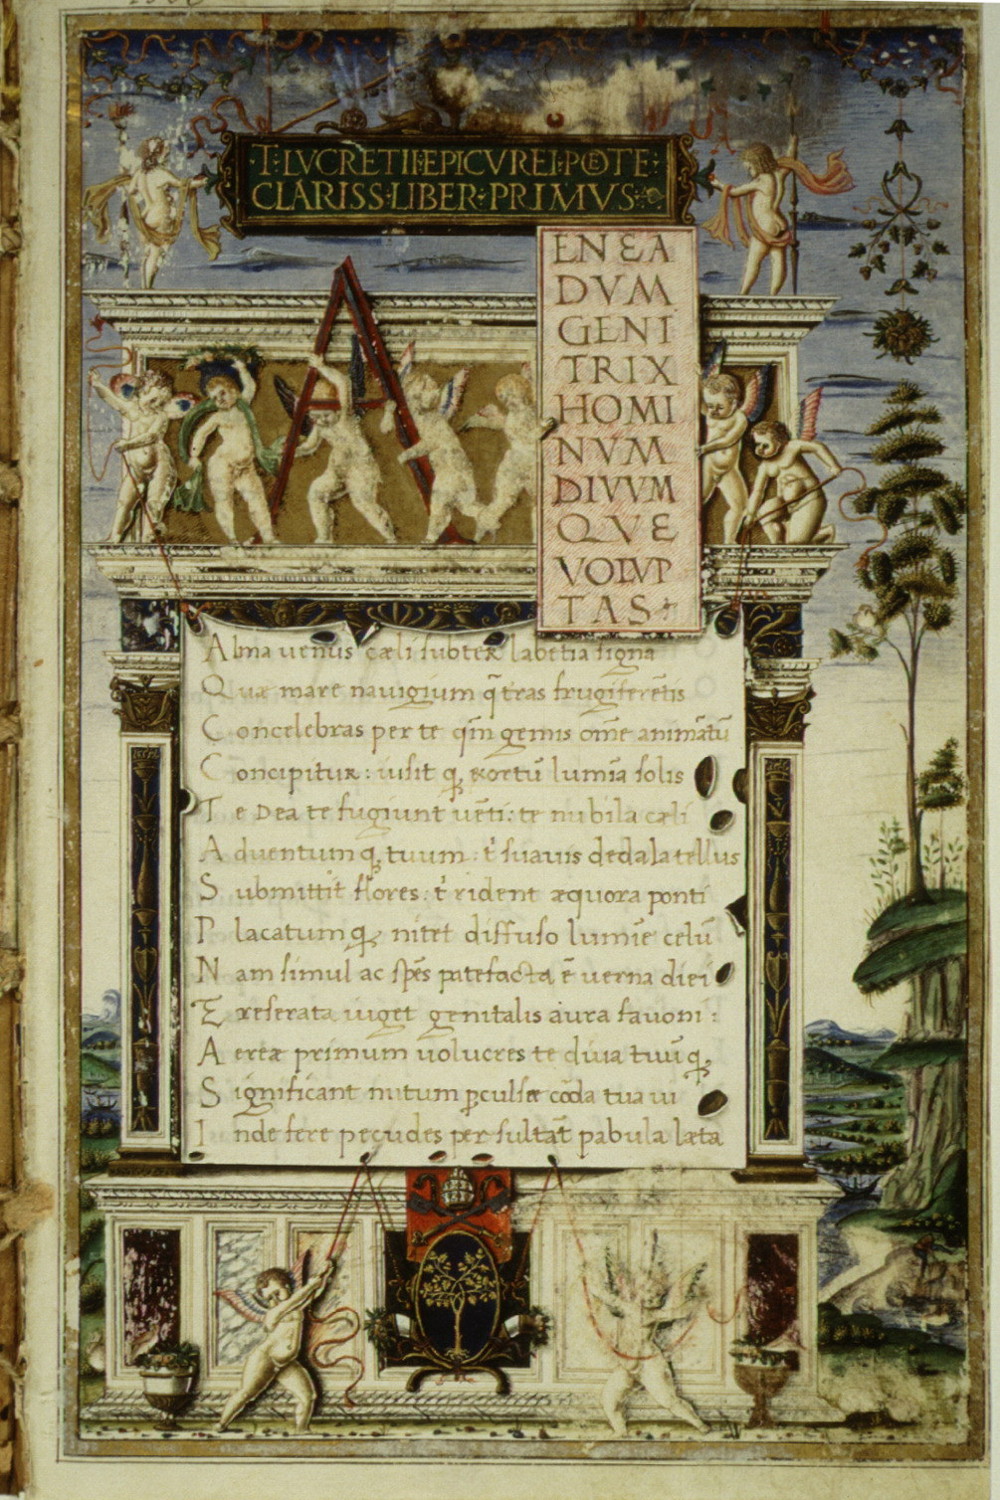 ·T·LVCRETII·EPICVREI·POETE·
CLARISS·LIBER·PRIMVS·
A
ENEA
DVM
GENI
TRIX
HOMI
NVM
DIVVM
QVE
VOLVP
TAS
Alma uenus cæli subter labentia signa
Quæ mare nauigium q̄ tr̄as frugiferētis
Concelebras per te qm̄ genus om̄e animātū
Concipitur: uisit q̨ exortū lumīa solis
Te Dea te fugiunt uēti: te nubila cæli
Aduentum q̨ tuum: t̄ suauis dedala tellus
Submittit flores: t̄ rident æquora ponti
Placatum q̨ nitet diffuso lumīe celū
Nam simul ac spēs patefacta ē uerna diei
Et reserata uiget genitalis aura fauoni:
Aereæ primum uolucres te diua tuū q̨
Significant initum ꝑculsæ corda tua ui
Inde fere pecudes per sultāt pabula læta